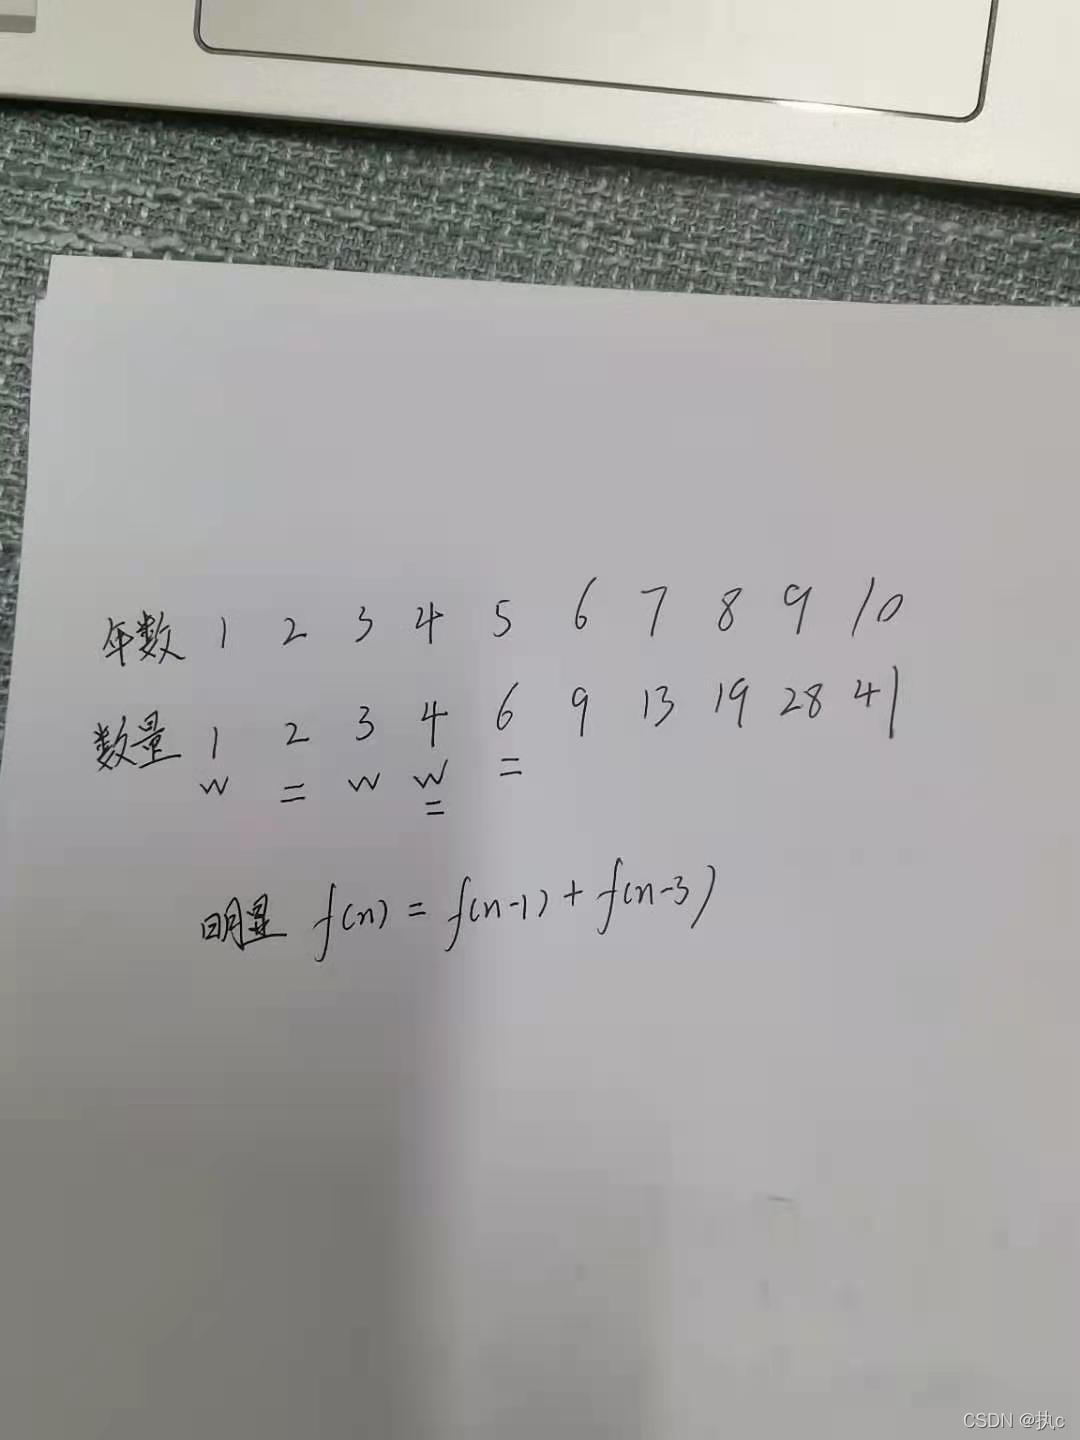 年数 1 2 3 4 5 6 7 8 9 10
数量 1 2 3 4 6 9 13 19 28 41
w = w w =
=
明显 f(n) = f(n-1) + f(n-3)
CSDN @执c